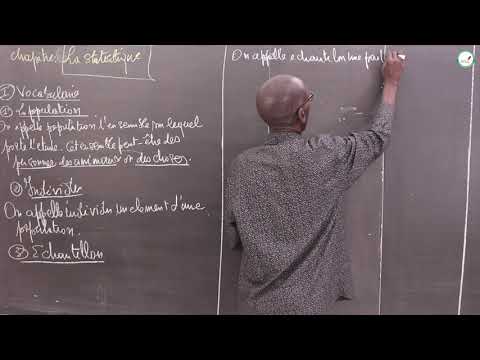 chapitre La statistique
I Vocabulaire
1) La population
On appelle population l'ensemble sur lequel
porte l'étude. Cet ensemble peut-être des
personnes, des animaux ou des choses.
2) Individu
On appelle individu un élément d'une
population.
3) Echantillon
On appelle echantillon une part